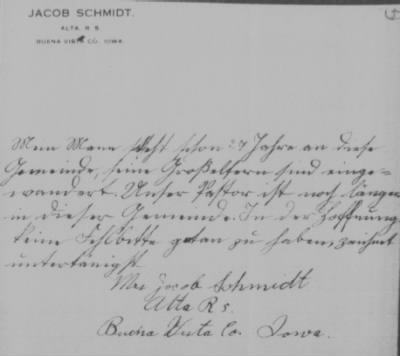 JACOB SCHMIDT.
ALTA, R 5
BUENA VISTA CO., IOWA.
5
Mein Mann steht schon 27 Jahre an diese
Gemeinde, seine Großeltern sind einge-
wandert. Unser Pastor ist noch länger
in dieser Gemeinde. In der Hoffnung
keine Fehlbitte getan zu haben, zeichnet
untertänigst
Mrs Jacob Schmidt
Alta R 5.
Buena Vista Co. Iowa.